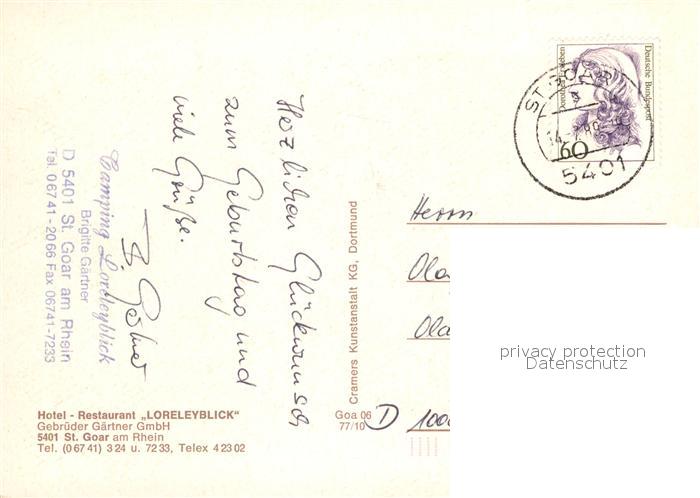 Herzlichen Glückwunsch
zum Geburtstag und
viele Grüße.
B. Gärtner
Camping Loreleyblick
Brigitte Gärtner
D 5401 St. Goar am Rhein
Tel. 06741-2066 Fax 06741-7233
Hotel - Restaurant „LORELEYBLICK"
Gebrüder Gärtner GmbH
5401 St. Goar am Rhein
Tel. (06741) 324 u. 7233, Telex 42302
Cramers Kunstanstalt KG, Dortmund
Goa 06
77/10
Deutsche Bundespost
60
ST. GOAR
5401
Herrn
Ola
Ola
D 1000
privacy protection
Datenschutz